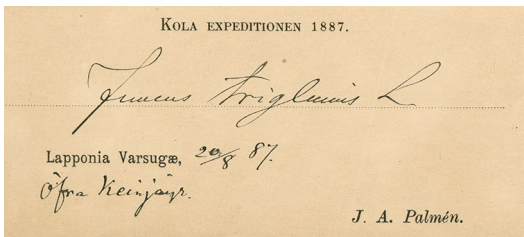 KOLA EXPEDITIONEN 1887.
Juncus triglumis L
Lapponia Varsugæ, 20/8 87.
öfra Keinjäyr.
J. A. Palmén.